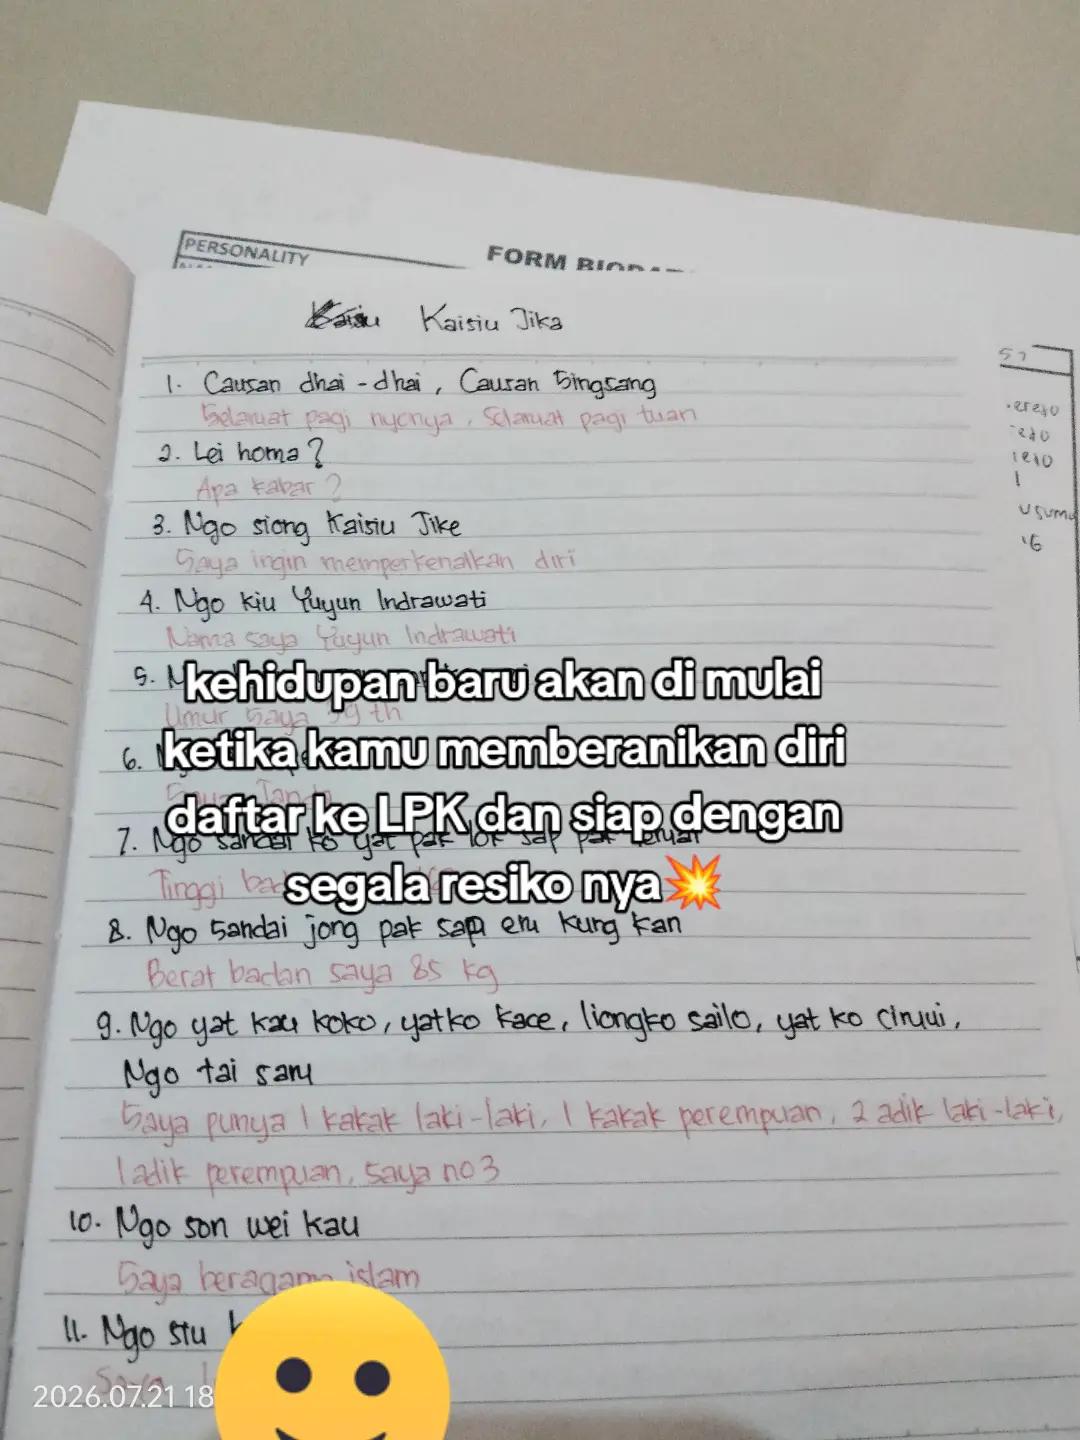 PERSONALITY
FORM
Kaisiu Jika
1. Causan dhai - dhai, Causan Singsang
Selamat pagi nyonya, Selamat pagi tuan
2. Lei homa?
Apa kabar?
3. Ngo siong Kaisiu Jike
Saya ingin memperkenalkan diri
4. Ngo kiu Yuyun Indrawati
Nama saya Yuyun Indrawati
5.
kehidupan baru akan di mulai
Umur saya 39 th
6.
ketika kamu memberanikan diri
Saya Janda
daftar ke LPK dan siap dengan
7. Ngo sandai ko yat pak lok sap pak
Tinggi
segala resiko nya💥
8. Ngo sandai jong pak sap em kung kan
Berat badan saya 85 kg
9. Ngo yat kau koko, yatko kace, liongko sailo, yat ko cimui,
Ngo tai sam
Saya punya 1 kakak laki-laki, 1 kakak perempuan, 2 adik laki-laki,
1 adik perempuan, saya no 3
10. Ngo son wei kau
Saya beragama islam
11. Ngo stu
Saya
2026.07.21 18